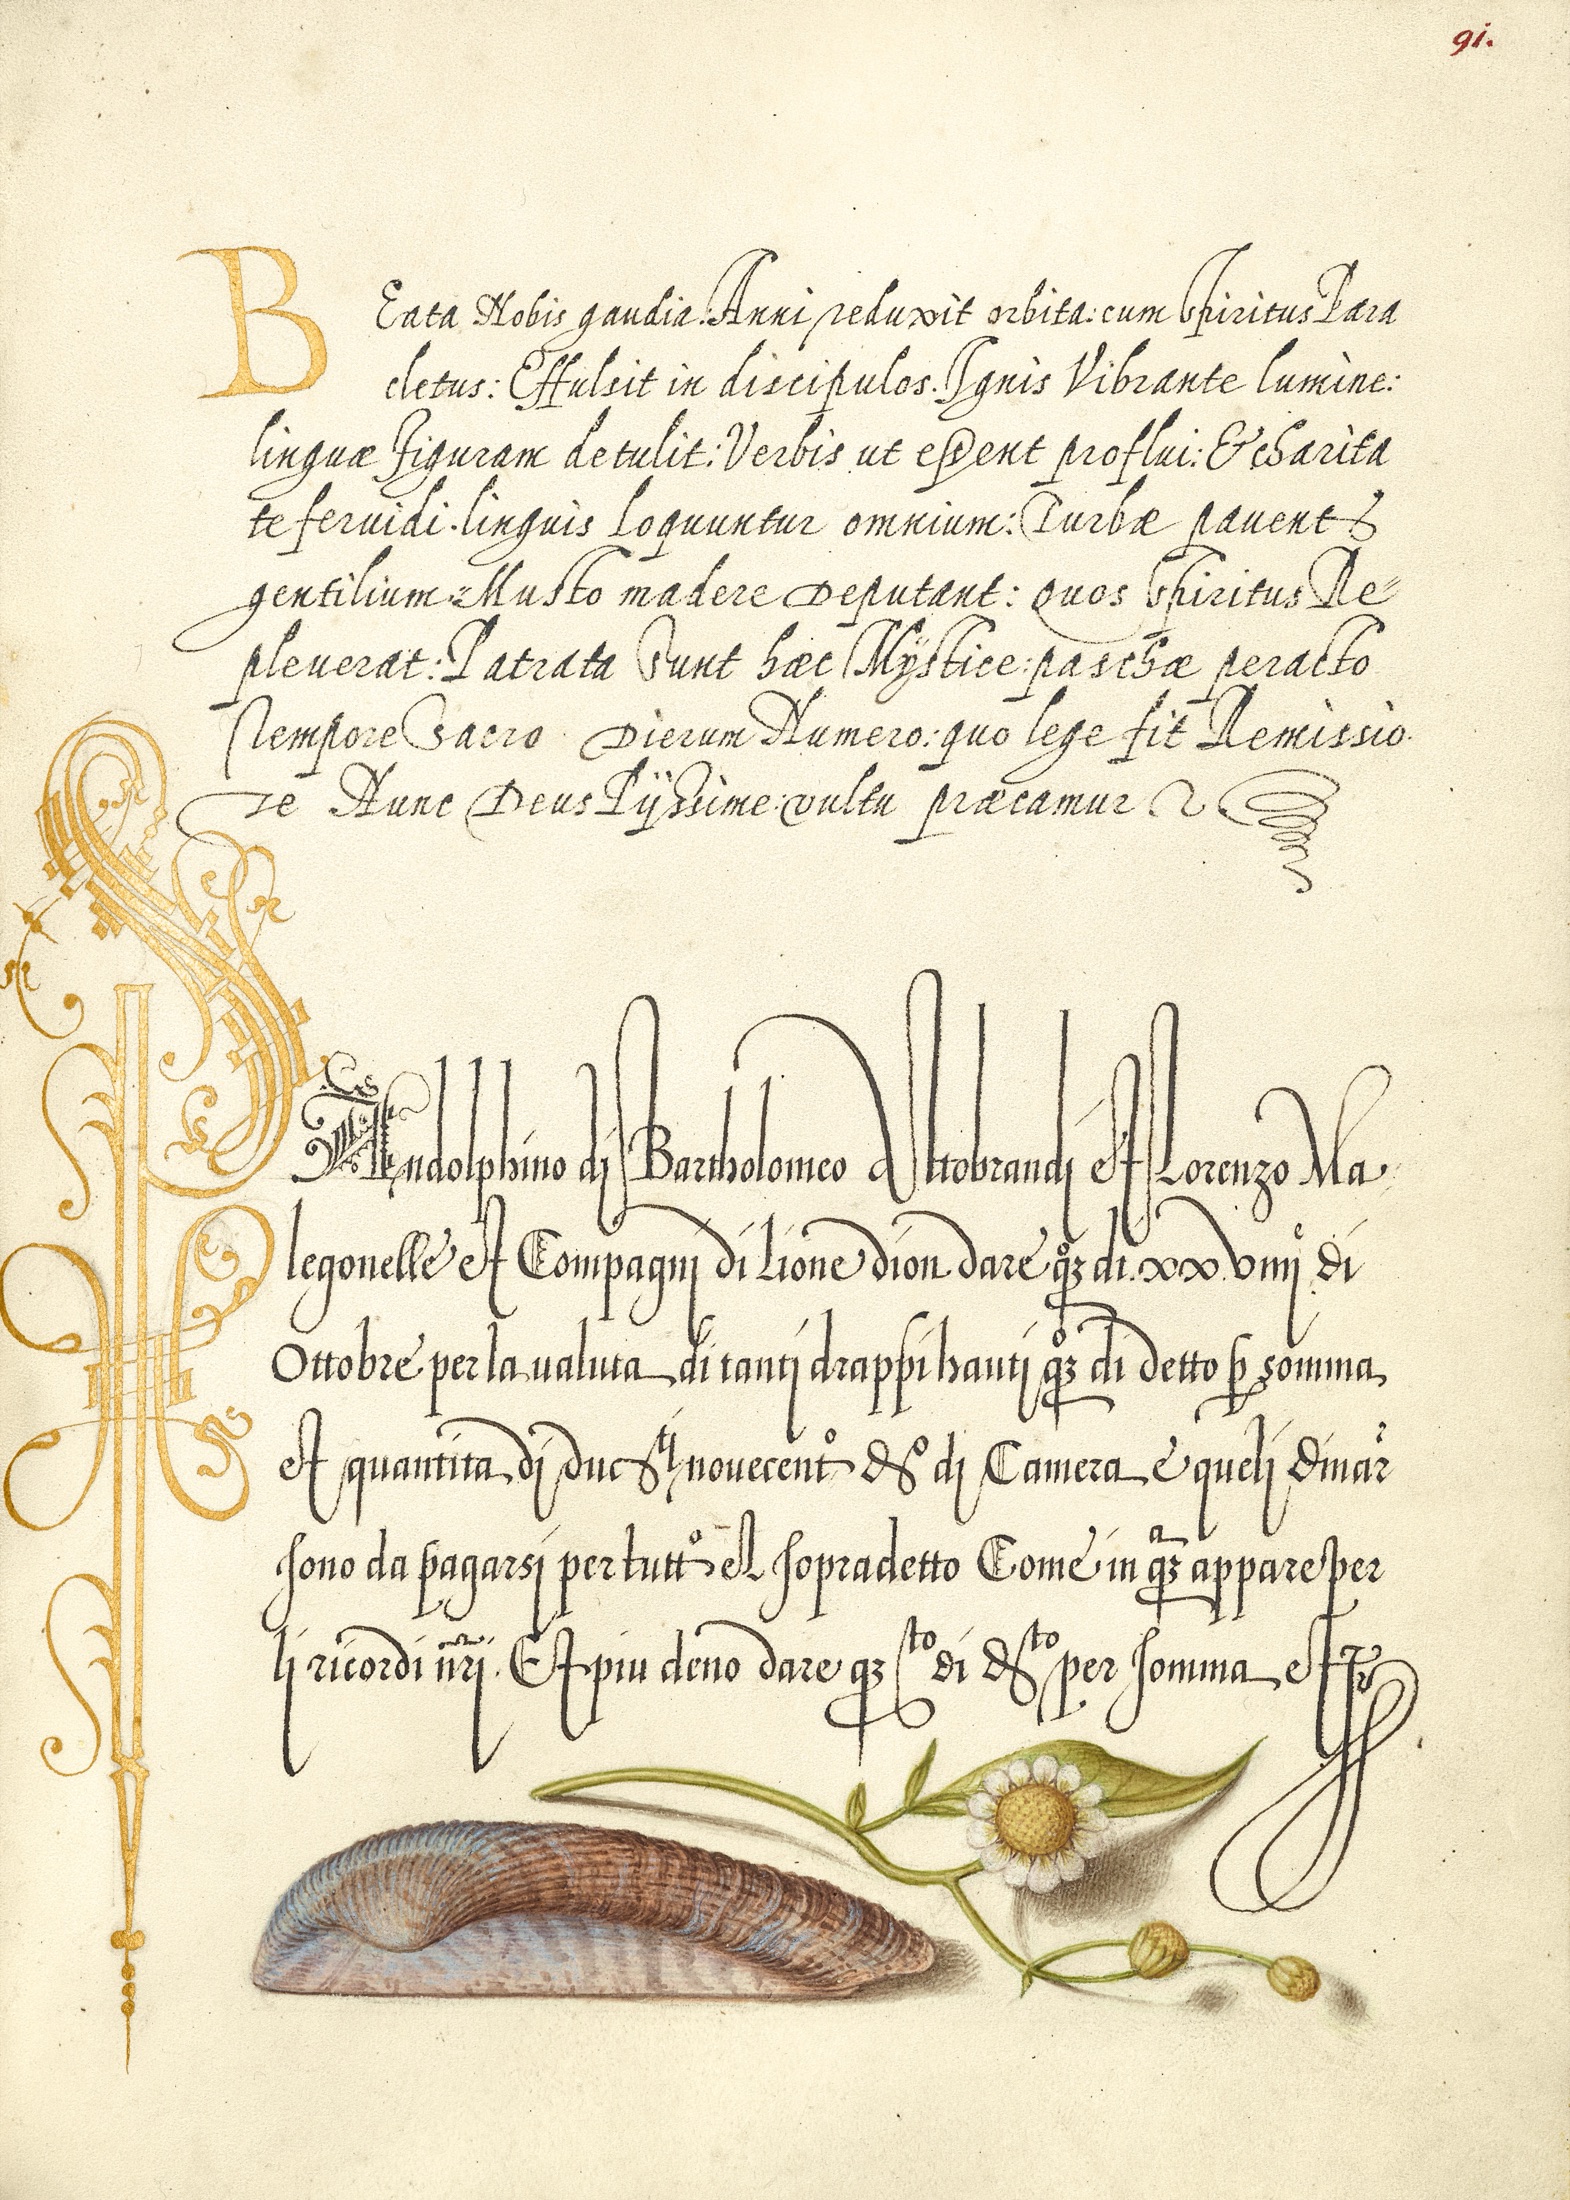 91.
BEata Nobis gaudia: Anni reduxit orbita: cum Spiritus Para
cletus: Effulsit in discipulos. Ignis Vibrante lumine:
linguæ figuram detulit: Verbis ut essent proflui: & charita
te feruidi. linguis loquuntur omnium: Turbæ pauent
gentilium: Musto madere Deputant: quos Spiritus Re=
pleuerat: Patrata Sunt hæc Mÿstice: paschæ peracto
Tempore Sacro Dierum Numero: quo lege fit Remissio.
Te Nunc Deus Pijssime: vultu præcamur
Andolphino di Bartholomeo Altobrandi et Lorenzo Ma
legonelle et Compagnj di Lione dion dare di. xxviiij di
Ottobre per la ualuta di tantj drappi hautj di detto somma
et quantita dj nouecento dj Camera e quelj dinar
sono da pagarsj per tutto el sopradetto Come in appare per
lj ricordi nrj. Et piu deno dare di per somma et